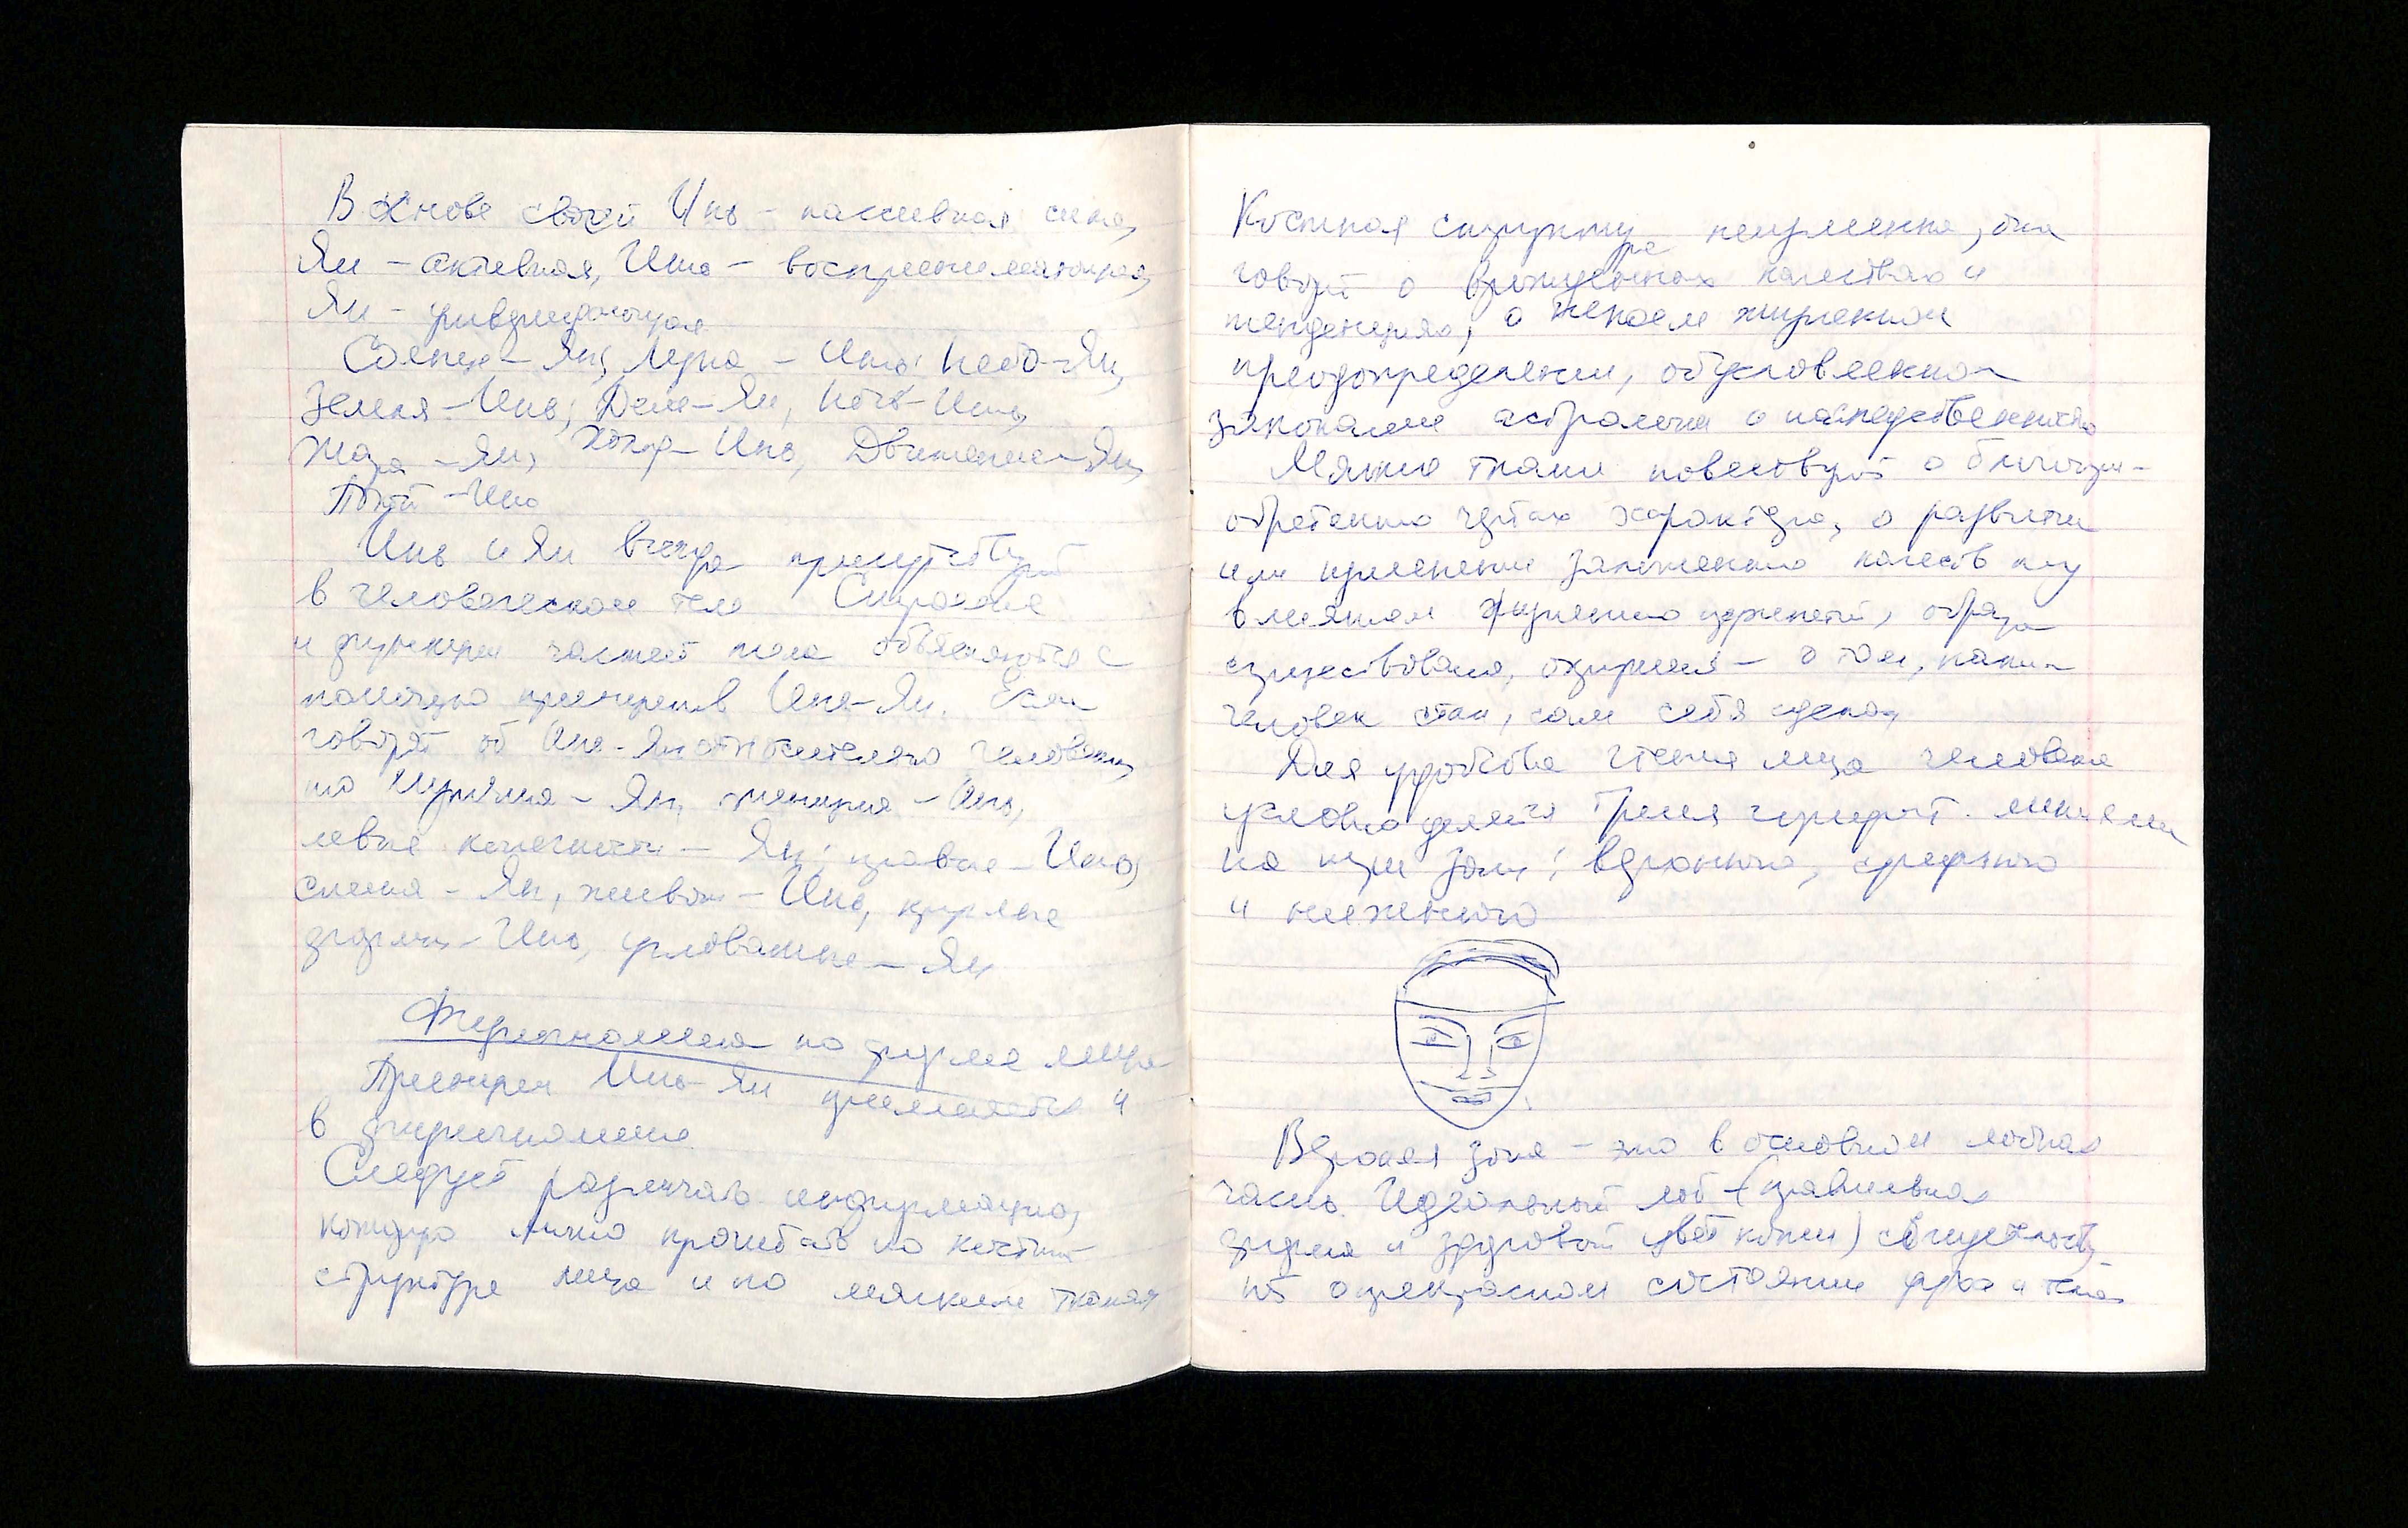 В основе своей Инь – пассивная сила,
Ян – активная, Инь – воспринимающая,
Ян –
Солнце – Ян, Луна – Инь, Небо – Ян,
Земля – Инь, День – Ян, Ночь – Инь,
Жара – Ян, Холод – Инь, Движение – Ян,
Покой – Инь
Инь и Ян всегда присутствуют
в человеческом теле Строение
и функции частей тела объясняются с
помощью принципов Инь-Ян. Если
говорят об Инь-Ян относительно человека,
то мужчина – Ян, женщина – Инь,
левые конечности – Ян, правые – Инь,
спина – Ян, живот – Инь, круглые
формы – Инь, угловатые – Ян
Физиогномика по форме лица
Принцип Инь-Ян применяется и
в физиогномике
Следует различать информацию,
которую можно прочитать по костной
структуре лица и по мягким тканям
Костная структуру неизменна, она
ре
говорит о врожденных качествах и
тенденциях, о некоем жизненном
предопределении, обусловленном
законами астрологии и наследственности
Мягкие ткани повествуют о благопри-
обретенных чертах характера, о развитии
или изменении заложенных качеств под
влиянием жизненных, образа
существования, – о том, каким
человек стал, сам себя сделал,
Для удобства чтения лица человека
условно делится тремя горизонт. линиями
на три зоны: верхнюю, среднюю
и нижнюю
Верхняя зона – это в основном лобная
часть. Идеальный лоб – (правильная
форма и здоровый цвет кожи) свидетельству-
ют о прекрасном состоянии духа и тела